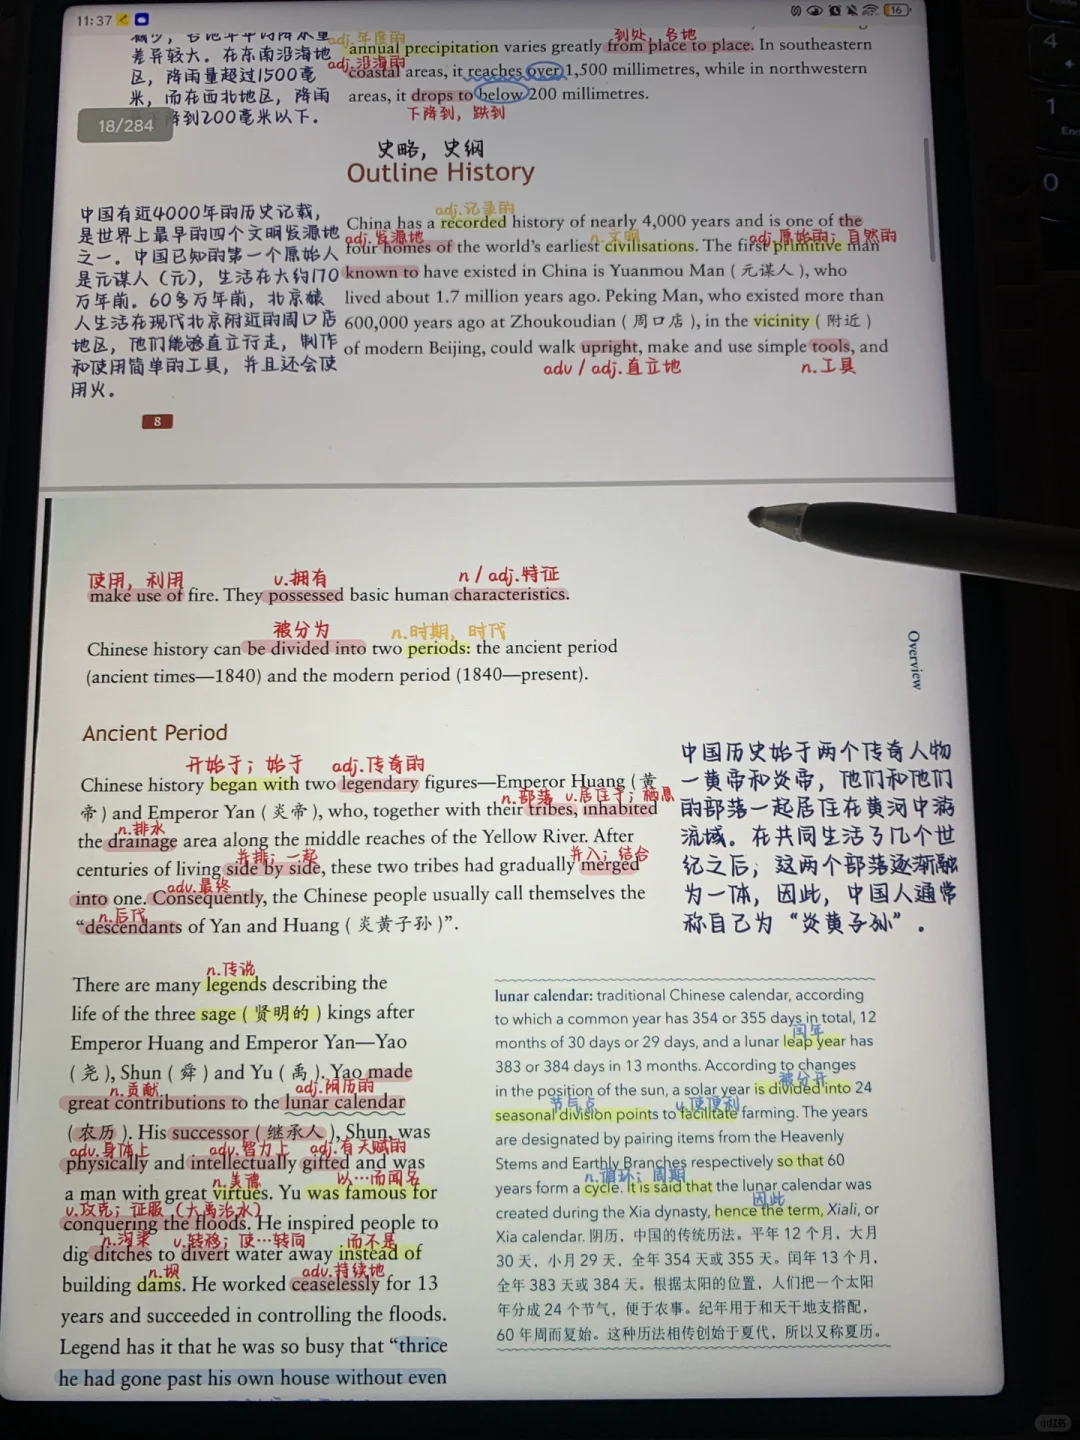 11:37
16
4
1
End
0
18/284
差异较大。在东南沿海地
区，降雨量超过1500毫
米，而在西北地区，降雨
降到200毫米以下。
adj.年度的
到处，各地
annual precipitation varies greatly from place to place. In southeastern
adj.沿海的
coastal areas, it reaches over 1,500 millimetres, while in northwestern
areas, it drops to below 200 millimetres.
下降到，跌到
史略，史纲
Outline History
中国有近4000年的历史记载，
是世界上最早的四个文明发源地
之一。中国已知的第一个原始人
是元谋人（元），生活在大约170
万年前。60多万年前，北京猿
人生活在现代北京附近的周口店
地区，他们能够直立行走，制作
和使用简单的工具，并且还会使
用火。
adj.记录的
China has a recorded history of nearly 4,000 years and is one of the
adj.发源地
n.文明
adj.原始的；自然的
four homes of the world's earliest civilisations. The first primitive man
known to have existed in China is Yuanmou Man (元谋人), who
lived about 1.7 million years ago. Peking Man, who existed more than
600,000 years ago at Zhoukoudian (周口店), in the vicinity (附近)
of modern Beijing, could walk upright, make and use simple tools, and
adv / adj.直立地
n.工具
8
使用，利用
v.拥有
n / adj.特征
make use of fire. They possessed basic human characteristics.
被分为
n.时期，时代
Chinese history can be divided into two periods: the ancient period
(ancient times—1840) and the modern period (1840—present).
Overview
Ancient Period
开始于；始于
adj.传奇的
Chinese history began with two legendary figures—Emperor Huang (黄
n.部落
v.居住于；栖息
帝) and Emperor Yan (炎帝), who, together with their tribes, inhabited
n.排水
the drainage area along the middle reaches of the Yellow River. After
并排；一起
并入；结合
centuries of living side by side, these two tribes had gradually merged
adv.最终
into one. Consequently, the Chinese people usually call themselves the
n.后代
"descendants of Yan and Huang (炎黄子孙)".
中国历史始于两个传奇人物
—黄帝和炎帝，他们和他们
的部落一起居住在黄河中游
流域。在共同生活了几个世
纪之后，这两个部落逐渐融
为一体，因此，中国人通常
称自己为“炎黄子孙”。
n.传说
There are many legends describing the
life of the three sage (贤明的) kings after
Emperor Huang and Emperor Yan—Yao
(尧), Shun (舜) and Yu (禹). Yao made
n.贡献
adj.阴历的
great contributions to the lunar calendar
(农历). His successor (继承人), Shun, was
adv.身体上
adv.智力上
adj.有天赋的
physically and intellectually gifted and was
n.美德
以…而闻名
a man with great virtues. Yu was famous for
v.攻克；征服（大禹治水）
conquering the floods. He inspired people to
n.沟渠
v.转移；使…转向
而不是
dig ditches to divert water away instead of
n.坝
adv.持续地
building dams. He worked ceaselessly for 13
years and succeeded in controlling the floods.
Legend has it that he was so busy that "thrice
he had gone past his own house without even
lunar calendar: traditional Chinese calendar, according
to which a common year has 354 or 355 days in total, 12
闰年
months of 30 days or 29 days, and a lunar leap year has
383 or 384 days in 13 months. According to changes
被分开
in the position of the sun, a solar year is divided into 24
节气点
v.使便利
seasonal division points to facilitate farming. The years
are designated by pairing items from the Heavenly
Stems and Earthly Branches respectively so that 60
n.循环；周期
years form a cycle. It is said that the lunar calendar was
因此
created during the Xia dynasty, hence the term, Xiali, or
Xia calendar. 阴历，中国的传统历法。平年 12 个月，大月
30 天，小月 29 天，全年 354 天或 355 天。闰年 13 个月，
全年 383 天或 384 天。根据太阳的位置，人们把一个太阳
年分成 24 个节气，便于农事。纪年用于和天干地支搭配，
60 年周而复始。这种历法相传创始于夏代，所以又称夏历。
小红书